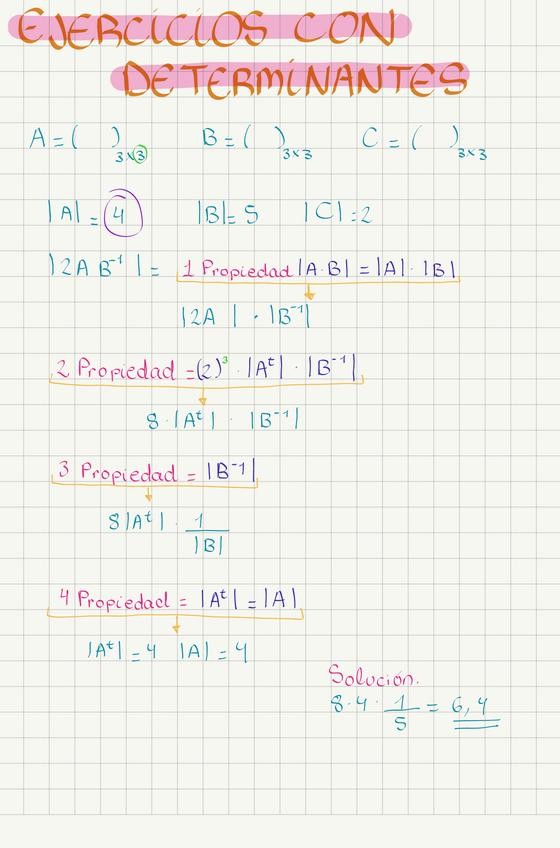 EJERCICIOS CON
DETERMINANTES
A = ( )₃ₓ₃ B = ( )₃ₓ₃ C = ( )₃ₓ₃
|A| = 4 |B| = 5 |C| = 2
|2A B⁻¹| = 1 Propiedad |A·B| = |A|·|B|
|2A| · |B⁻¹|
2 Propiedad = (2)³ · |Aᵗ| · |B⁻¹|
8 · |Aᵗ| · |B⁻¹|
3 Propiedad = |B⁻¹|
8|Aᵗ| · 1
|B|
4 Propiedad = |Aᵗ| = |A|
|Aᵗ| = 4 |A| = 4
Solución.
8·4 · 1/5 = 6,4